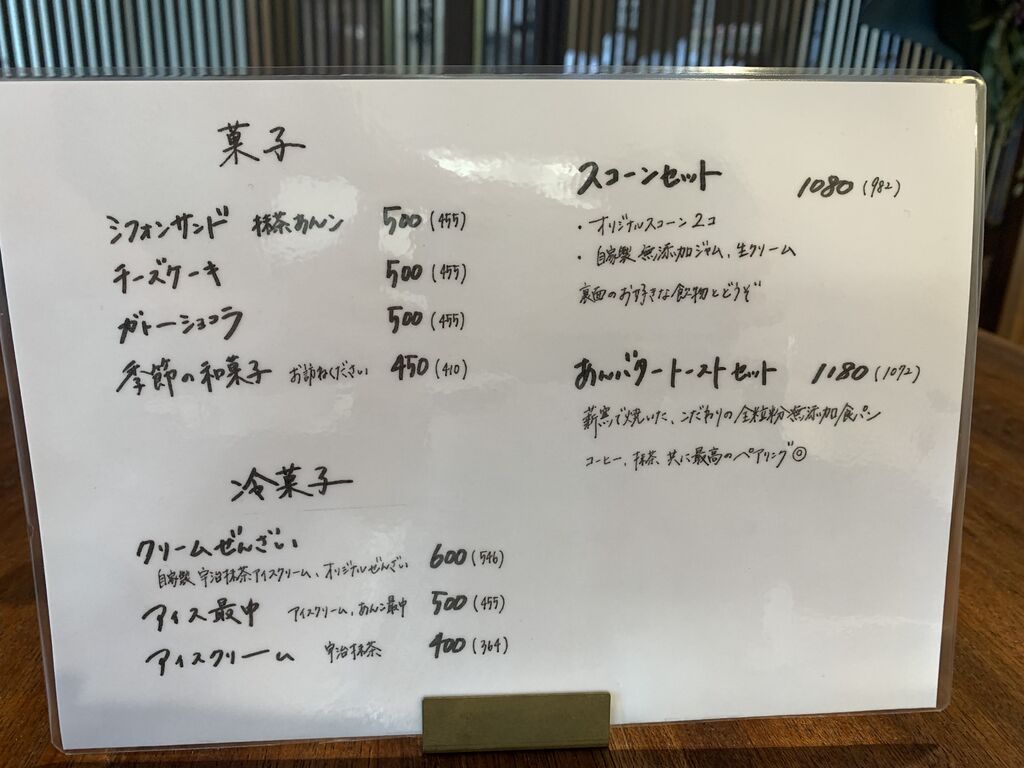 菓子
シフォンサンド 抹茶あんン 500 (455)
チーズケーキ 500 (455)
ガトーショコラ 500 (455)
季節の和菓子 お訪ねください 450 (410)
冷菓子
クリームぜんざい 600 (546)
自家製 宇治抹茶アイスクリーム、オリジナルぜんざい
アイス最中 アイスクリーム、あんこ最中 500 (455)
アイスクリーム 宇治抹茶 400 (364)
スコーンセット 1080 (982)
・オリジナルスコーン2コ
・自家製 無添加ジャム、生クリーム
裏面のお好きな飲物とどうぞ
あんバタートーストセット 1180 (1092)
薪窯で焼いた、こだわりの全粒粉無添加食パン
コーヒー、抹茶 共に最高のペアリング◎